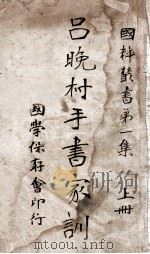 國粹叢書第一集 上冊
呂晚村手書家訓
國學保存會印行
mtoou.info